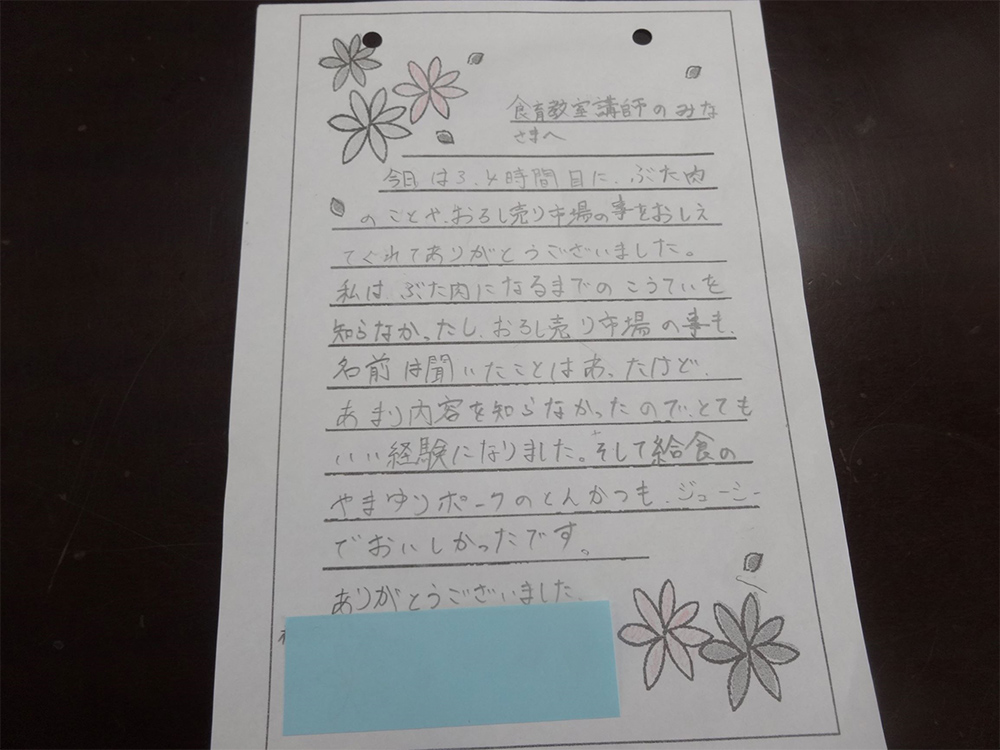 食育教室講師のみな
さまへ
今日は3.4時間目に、ぶた肉
のことや、おろし売り市場の事をおしえ
てくれてありがとうございました。
私は、ぶた肉になるまでのこうていを
知らなかったし、おろし売り市場の事も、
名前は聞いたことはあったけど、
あまり内容を知らなかったので、とても
いい経験になりました。そして給食の
やまゆりポークのとんかつも、ジューシー
でおいしかったです。
ありがとうございました。